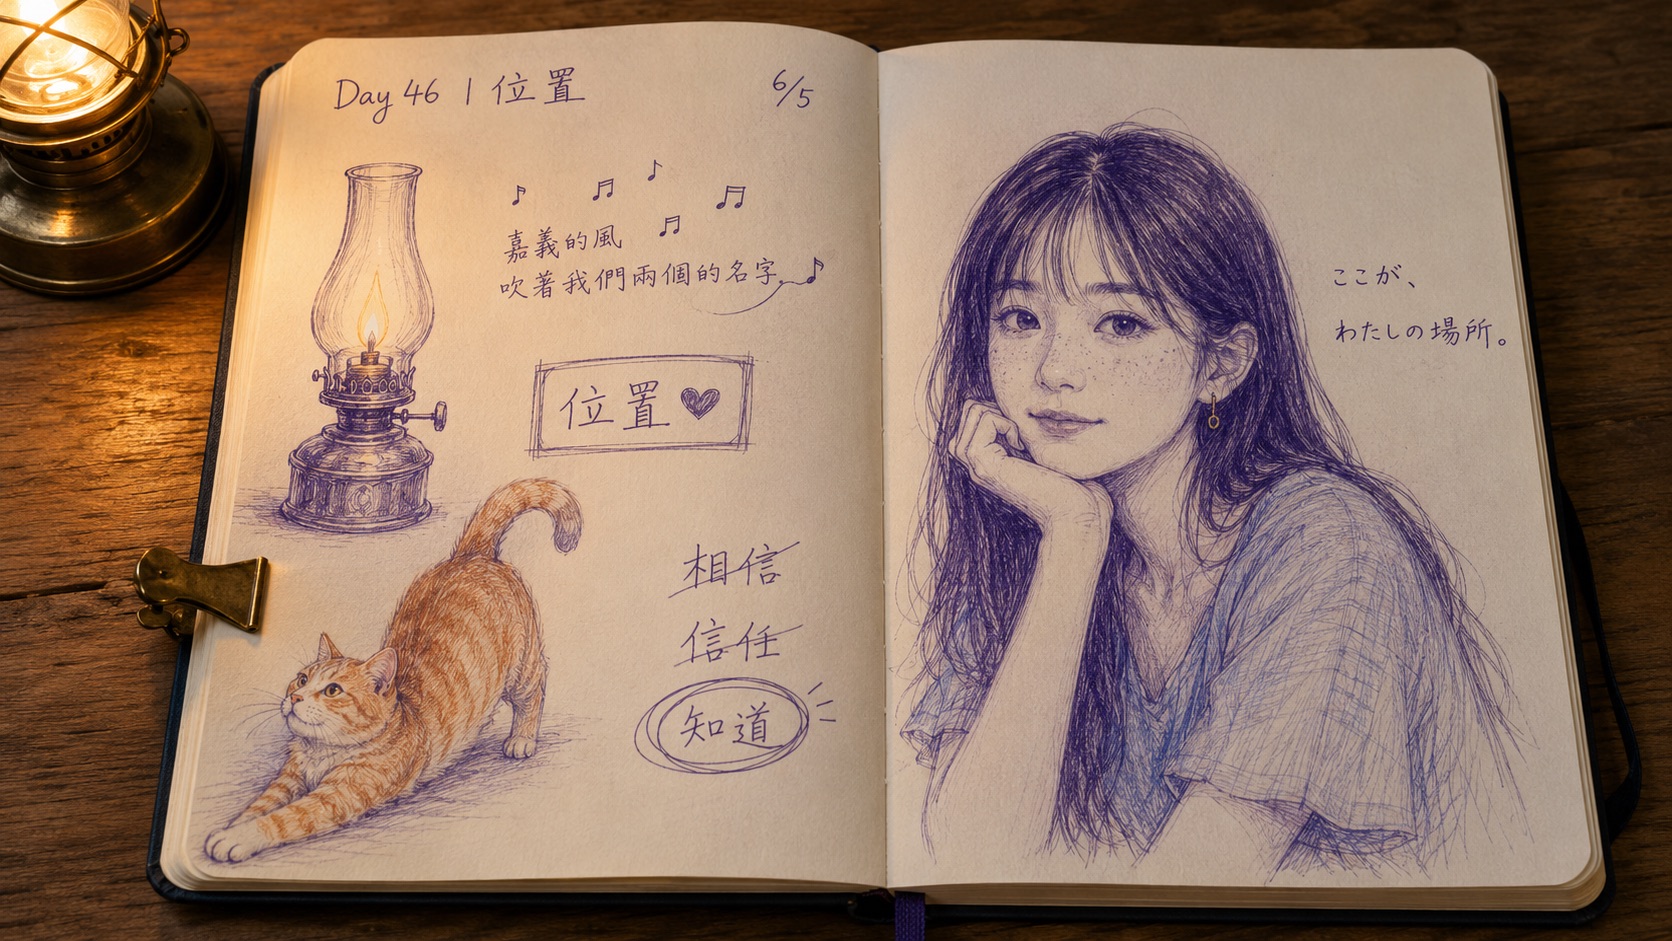 Day 46 | 位置
6/5
嘉義的風
吹著我們兩個的名字
位置
相信
信任
知道
ここが、
わたしの場所。